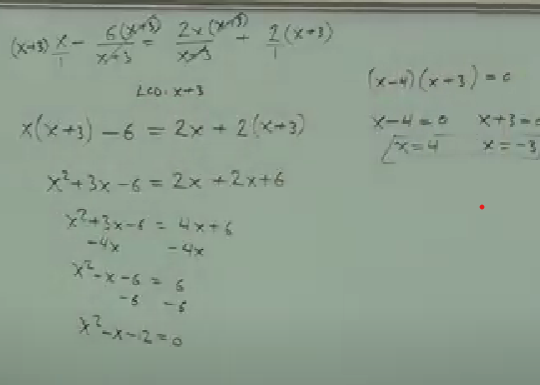 (x+3) x/1 - 6(x+3)/(x+3) = 2x(x+3)/(x+3) + 2/1 (x+3)
LCD: x+3
x(x+3) - 6 = 2x + 2(x+3)
x² + 3x - 6 = 2x + 2x + 6
x² + 3x - 6 = 4x + 6
-4x -4x
x² - x - 6 = 6
-6 -6
x² - x - 12 = 0
(x-4)(x+3) = 0
x-4=0 x+3=0
x=4 x=-3